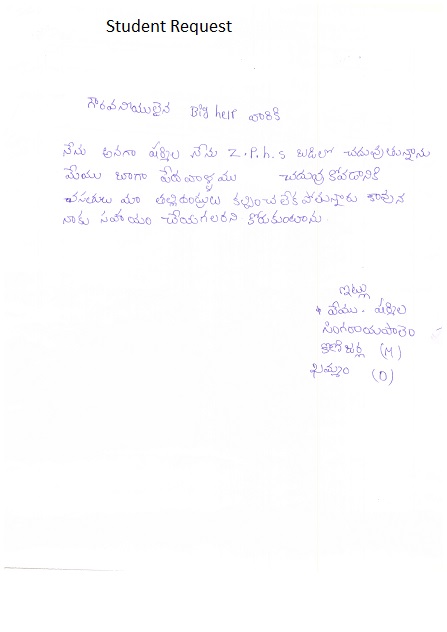 Student Request
గౌరవనీయులైన Big helr వారికి
నేను అనగా షర్మిల నేను Z.P.h.s బడిలో చదువుతున్నాను
మేము బాగా పేదవాళ్ళము చదువుకోవడానికి
వసతులు మా తల్లిదండ్రులు కల్పించలేక పోతున్నారు కావున
నాకు సహాయం చేయగలరని కోరుకుంటాను.
ఇట్లు
వేము. షర్మిల
సింగరాయపాలెం
(M)
ఖమ్మం (D)